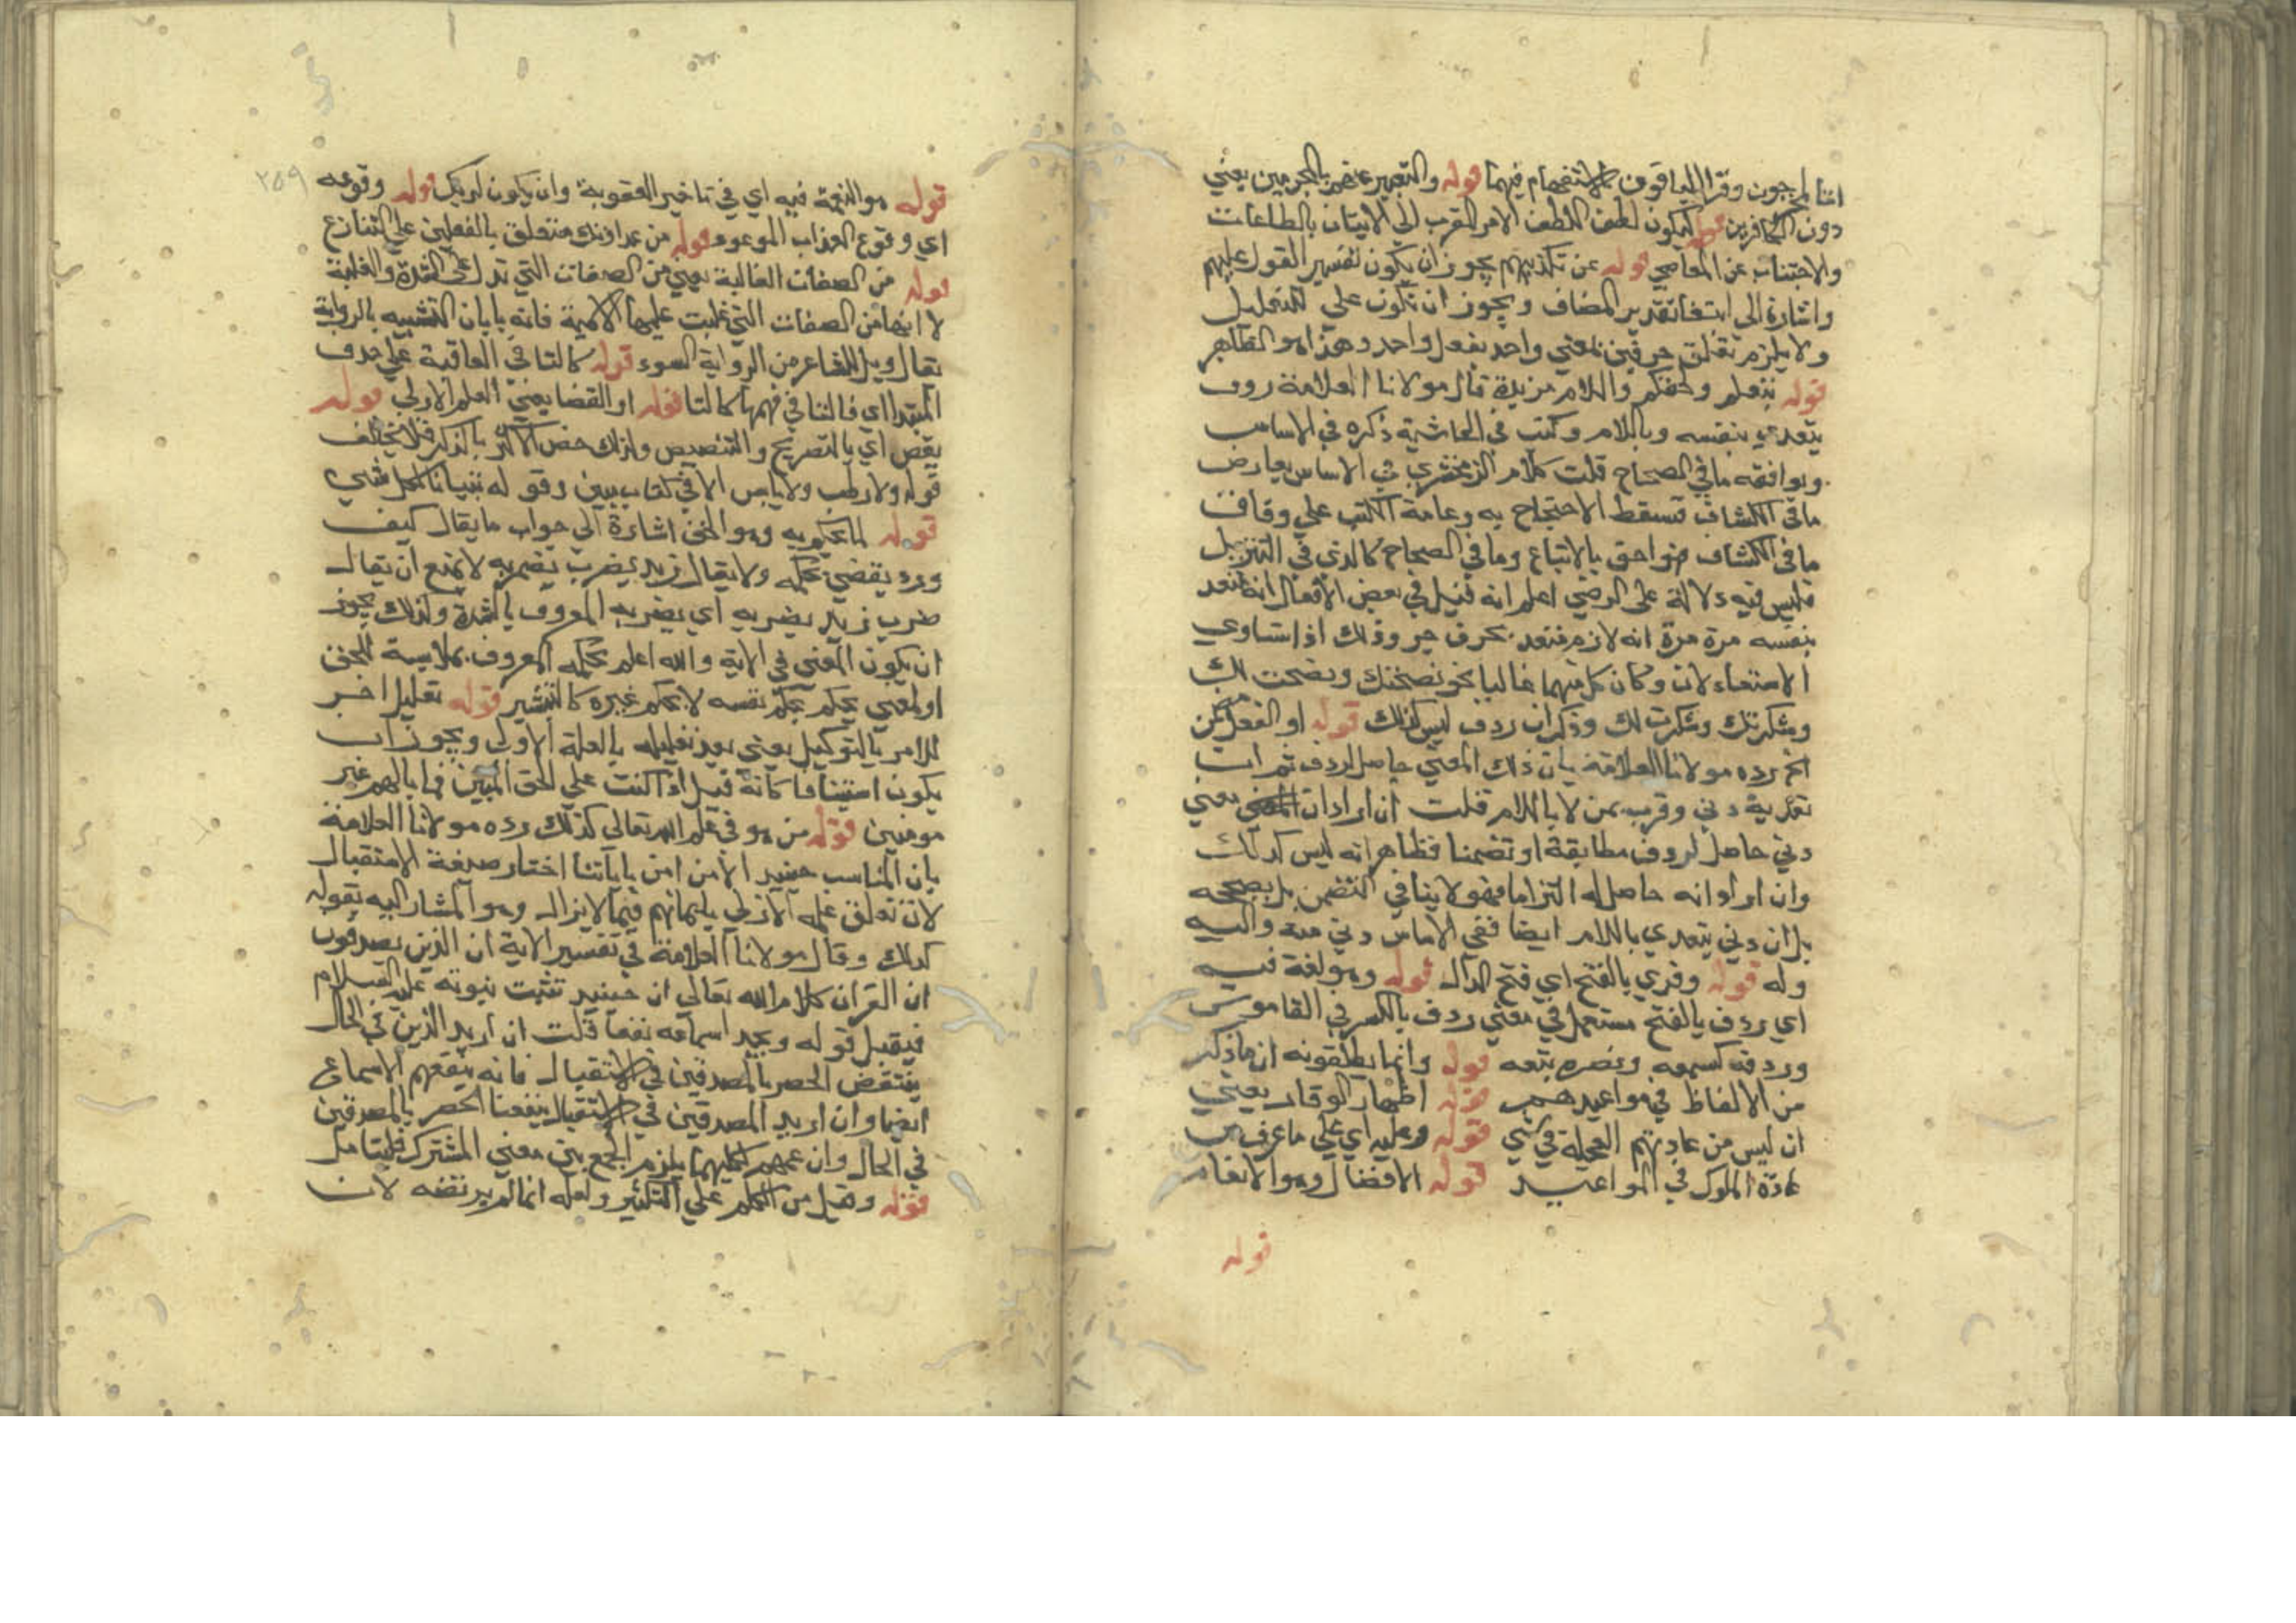 اننا لمخرجون وقرا الباقون بالاستفهام فيهما قوله والتعبير عنهم بالمجرمين يعني
دون الكافرين قوله ليكون لطفا اللطف الامر المقرب الي الاتيان بالطاعات
والاجتناب عن المعاصي قوله عن تكذيبهم يجوز ان يكون تفسير القول عليهم
واشارة الي تقدير المضاف ويجوز ان تكون علي للتعليل
ولا يلزم تعلق حرفين بمعني واحد بفعل واحد وهذا هو الظاهر
قوله تبعكم ولحقكم واللام مزيدة قال مولانا العلامة ردف
يتعدي بنفسه وباللام وكتب في الحاشية ذكره في الاساس
ويوافقه ما في الصحاح قلت كلام الزمخشري في الاساس يعارض
ما في الكشاف فتسقط الاحتجاج به وعامة الكتب علي وفاق
ما في الكشاف فهو احق بالاتباع وما في الصحاح كالذي في التنزيل
فليس فيه دلالة علي الرضي اعلم انه قيل في بعض الافعال انه متعد
بنفسه مرة ومرة انه لازم متعد بحرف جر وذلك اذا تساوي
الاستعمالان وكان كل منهما غالبا نحو نصحتك ونصحت لك
وشكرتك وشكرت لك وذكر ان ردف ليس كذلك قوله او الفعل مضمن
الخ رده مولانا العلامة بان ذلك المعني حاصل لردف ثم ان
تعدية دني وقرب بمن لا باللام قلت ان اراد ان المعني يعني
دني حاصل لردف مطابقة او تضمنا فظاهر انه ليس كذلك
وان اراد انه حاصل له التزاما فهو لا ينافي التضمين بل يصححه
بل ان دني يتعدي باللام ايضا ففي الاساس دني منه واليه
وله قوله وقري بالفتح اي فتح الدال قوله وهو لغة فيه
اي ردف بالفتح مستعمل في معني ردف بالكسر في القاموس
وردفه كسمعه ونصره تبعه قوله وانما يطلقونه ان ما ذكر
من الالفاظ في مواعيدهم قوله اظهار الوقار يعني
ان ليس من عادتهم العجلة في شي قوله وعليه اي علي ما عرف من
عادة الملوك في المواعيد قوله الافضال وهو الانعام
قوله
٢٥٩
قوله هو النعمة فيه اي في تاخير العقوبة وان يكون لربك قوله وقوعه
اي وقوع العذاب الموعود قوله من عداوتك متعلق بالفعلين علي التنازع
قوله من الصفات الغالبة يعني من الصفات التي تدل علي الشدة والغلبة
لا انها من الصفات التي غلبت عليها الاسمية فانه يا بان التشبيه بالرواية
يقال ويل للشاعر من الرواية السوء قوله كالتا في العاقبة علي حذف
المبتدا اي فالتا في فيهما كالتا قوله او القضا يعني العلم الازلي قوله
يقص اي بالتصريح والتنصيص ولذلك خص الاكثر بالذكر فلا يخالف
قوله ولا رطب ولا يابس الا في كتاب مبين وقوله تبيانا لكل شي
قوله لما يحكم به وهو الحق اشارة الي جواب ما يقال كيف
ورد يقضي بحكمه ولا يقال زيد يضرب بضربه لا يمنع ان يقال
ضرب زيد بضربه اي بضربه المعروف بالشدة ولذلك يجوز
ان يكون المعني في الاية والله اعلم بحكمه المعروف بملابسة الحق
او لمعني يحكم بحكم نفسه لا بحكم غيره كالبشير قوله تعليل اخر
للامر بالتوكيل يعني بعد تعليله بالعلة الاولي ويجوز ان
يكون استينافا كانه قيل اذا كنت علي الحق المبين فما بالهم غير
مومنين قوله من هو في علم الله تعالي كذلك رده مولانا العلامة
بان المناسب حينيذ الا من امن باياتنا اختار صيغة الاستقبال
لان تعلق علمه الازلي بايمانهم فيما لا يزال وهو المشار اليه بقوله
كذلك وقال مولانا العلامة في تفسير الاية ان الذين يصدقون
ان القران كلام الله تعالي ان حينيذ تثبت نبوته عليه السلام
فيقبل قوله ويجد اسماعه نفعا قلت ان اريد الذين في الحال
ينتقض الحصر بالمصدقين في الاستقبال فانه ينفعهم الاسماع
ايضا وان اريد المصدقين في الاستقبال ينفعنا الحصر بالمصدقين
في الحال وان عمهم كليهما يلزم الجمع بين معني المشترك فليتامل
قوله وقيل من الكلم علي التكثير ولعله انما لم يرتضه لان